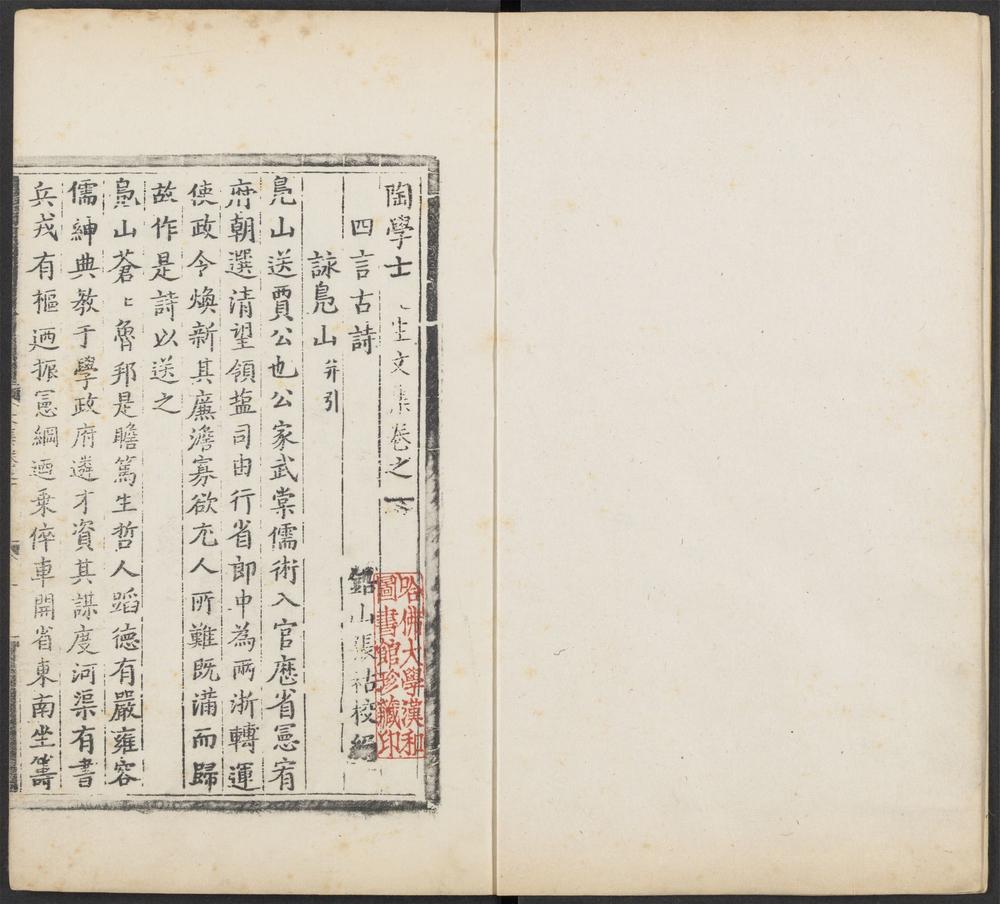 陶學士先生文集卷之一
四言古詩
鉛山張祜校編
詠鳧山并引
鳧山送賈公也公家武棠儒術入官歷省憲宥
府朝選清望領鹽司由行省郎中為兩浙轉運
使政令煥新其廉澹寡欲尤人所難既滿而歸
故作是詩以送之
鳧山蒼〻魯邦是瞻篤生哲人蹈德有嚴雍容
儒紳典教于學政府遴才資其謀度河渠有書
兵戎有樞迺振憲綱迺乘倅車開省東南坐籌
哈佛大學漢和
圖書館珍藏印